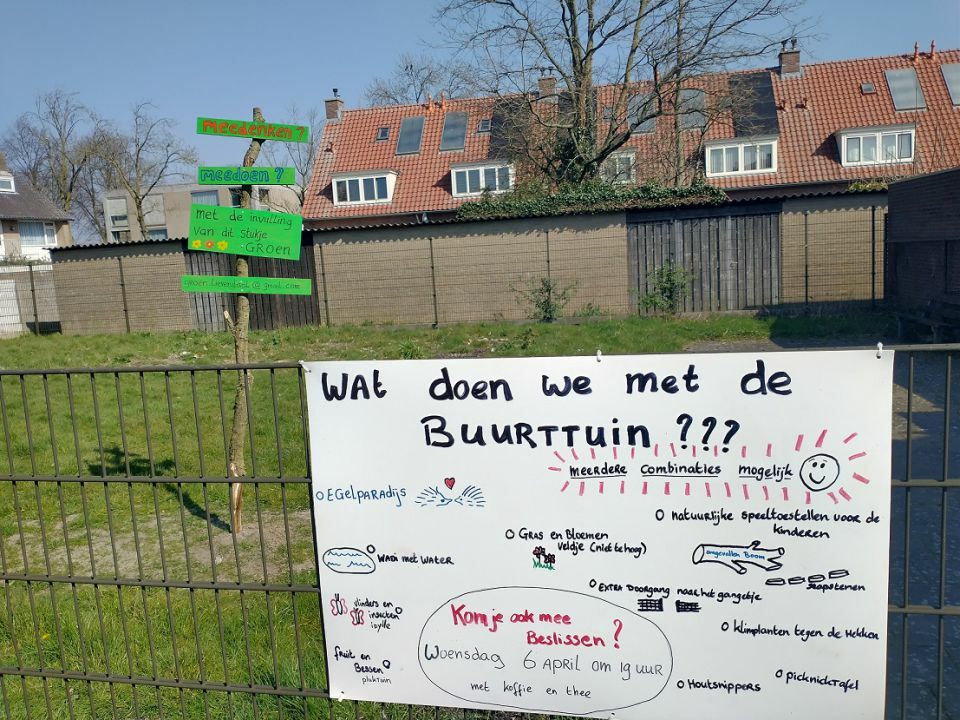 meedenken?
meedoen?
met de invulling
van dit stukje
GROEN
groen.lievendael@gmail.com
WAT doen we met de
BUURTTuin ???
meerdere combinaties mogelijk
EGelparadijs
natuurlijke speeltoestellen voor de
kinderen
Gras en Bloemen
Veldje (niet te hoog)
WADi met WATER
omgevallen Boom
stapstenen
EXTRA DOORGANG naar het gangetje
vlinders en
insecten
idylle
Klimplanten tegen de Hekken
Kom je ook mee
Beslissen?
Woensdag 6 APRIL om 19 uur
met koffie en thee
fruit en
Bessen
pluktuin
Houtsnippers
picknicktafel